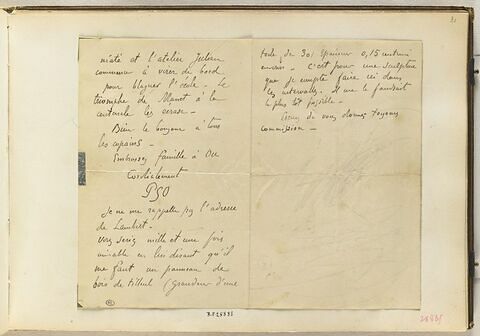 niaté et l'atelier Julian
commence à virer de bord
pour blaguer l'école - Le
triomphe de Manet à la
centurale les écrase -
Bien le bonjour à tous
les copains -
Embrassez famille à vous
Cordialement
PGO
Je ne me rappelle pas l'adresse
de Lambert.
vous seriez mille et une fois
aimable en lui disant qu'il
me faut un panneau de
bois de tilleul (Grandeur d'une
toile de 30) épaisseur 0,15 centim
environ - c'est pour une sculpture
que je compte faire ici dans
les intervalles. Il me le faudrait
le plus tôt possible -
de vous donner toujours
commission -